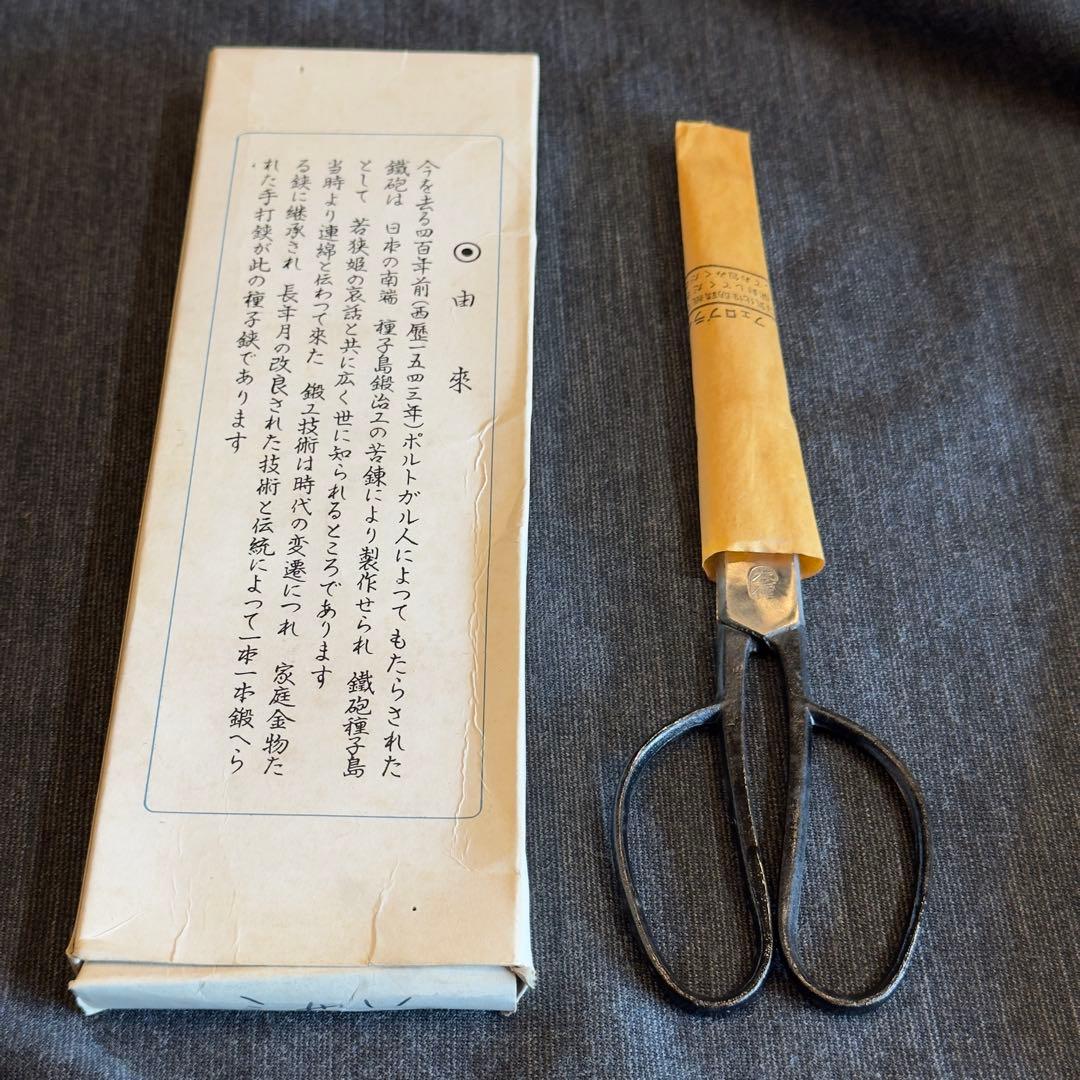 ◉由来
今を去る四百年前(西歴一五四三年)ポルトガル人によって もたらされた
鐵砲は 日本の南端 種子島鍛冶工の苦錬により製作せられ 鐵砲種子島
として 若狭姫の哀話と共に広く世に知られるところであります
当時より連綿と伝わって來た 鍛工技術は時代の変遷につれ 家庭金物た
る鋏に継承され 長年月の改良された技術と伝統によって一本一本鍛へら
れた手打鋏が此の種子鋏であります
フェロブラ